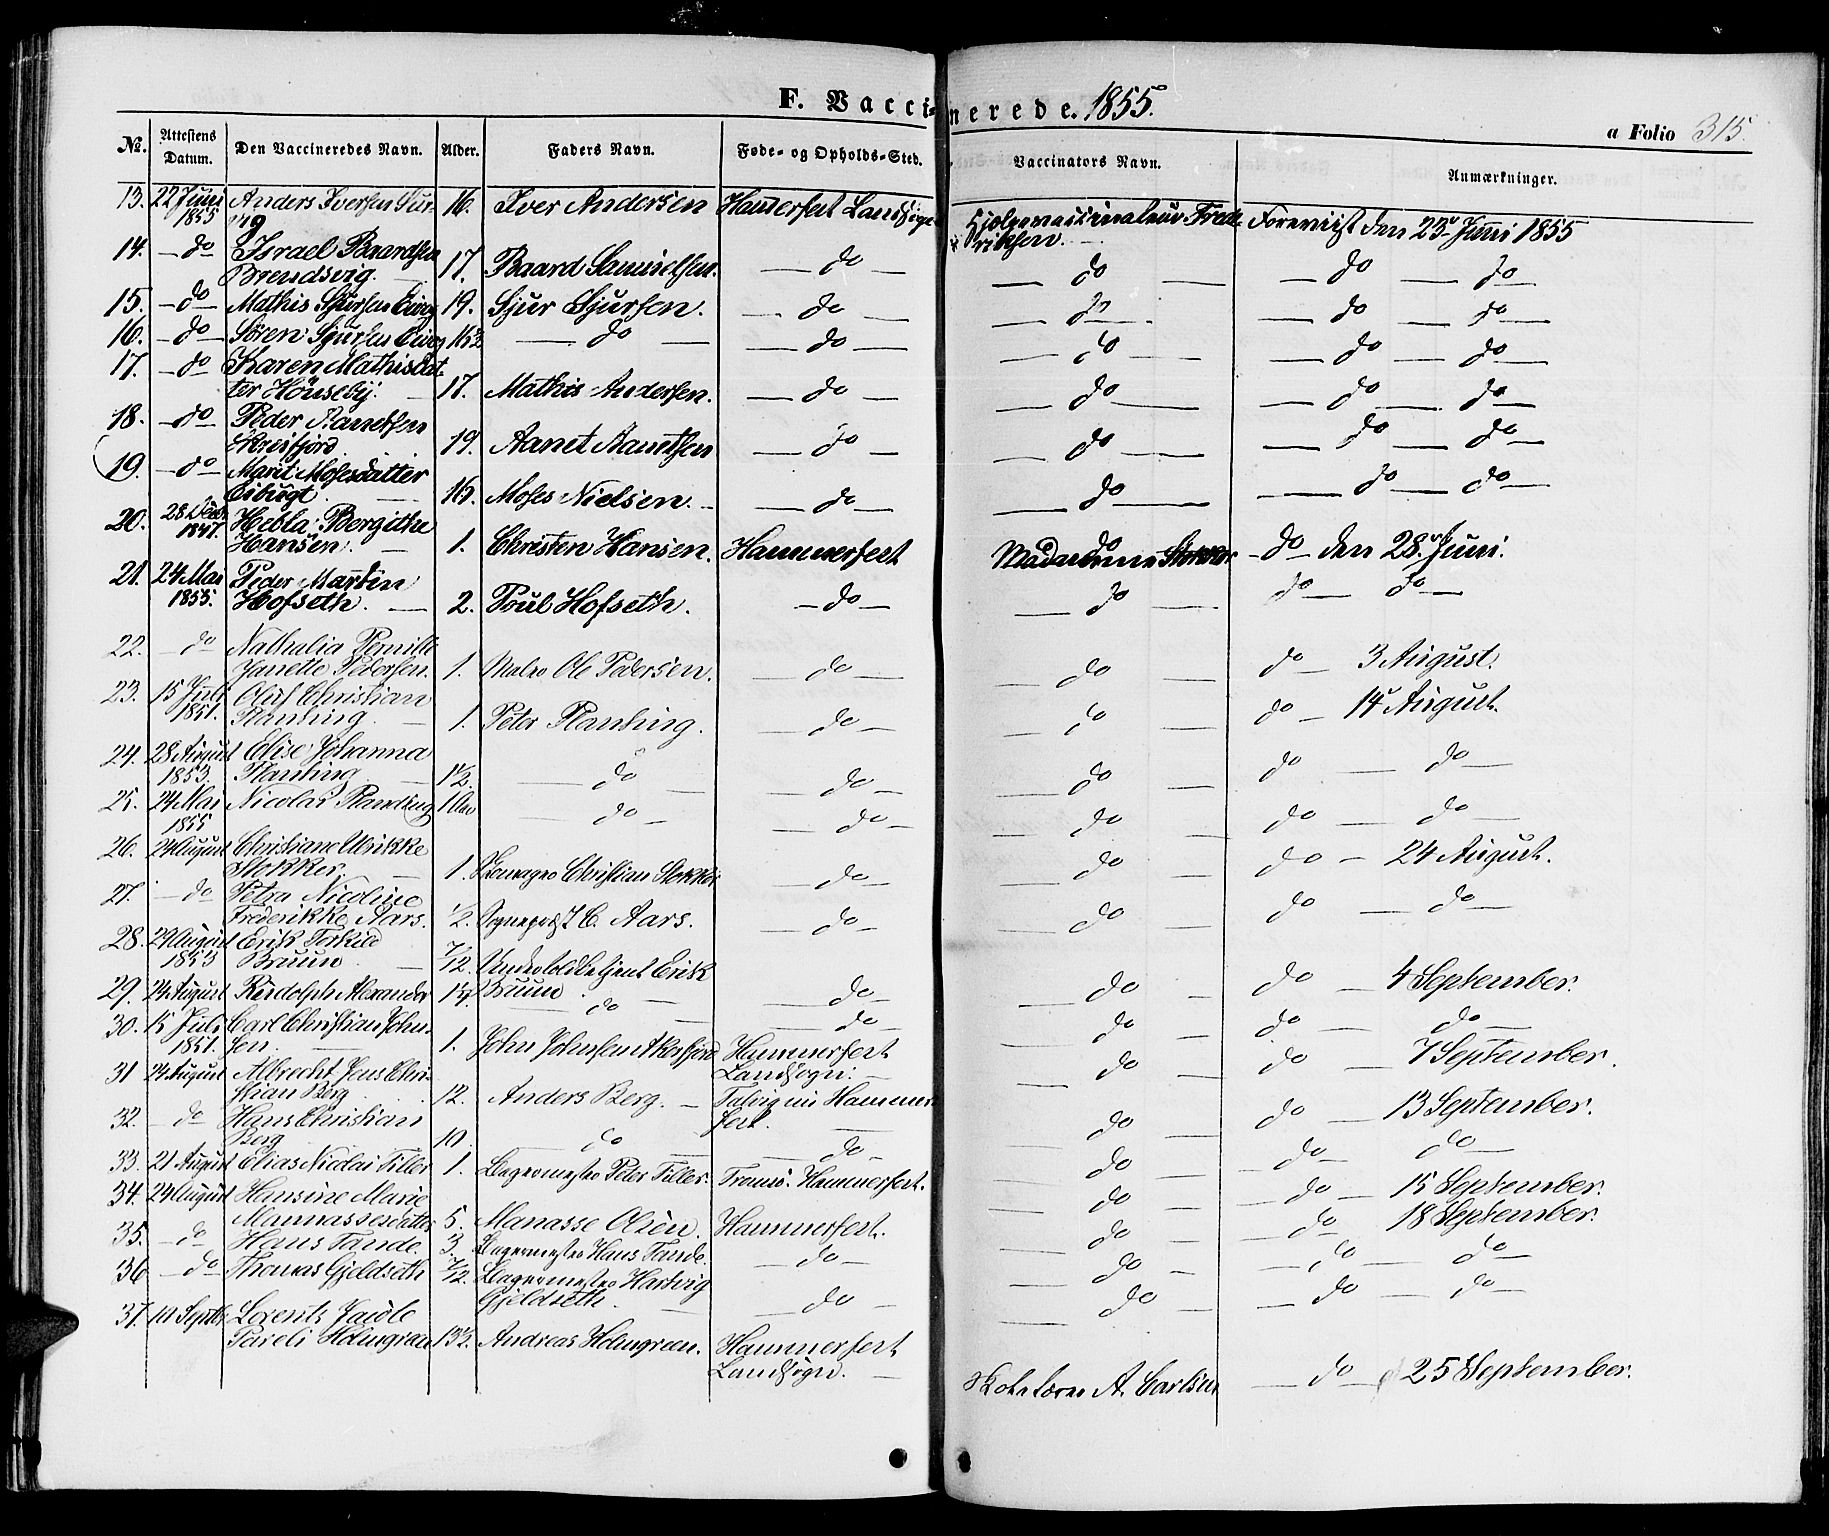 F. Vaccinerede. 1855.
a Folio 315.
№. Attestens Datum. Den Vaccineredes Navn. Alder. Faders Navn. Føde- og Opholds-Sted. Vaccinators Navn. Anmærkninger.
13. 22 Juni 1855 Anders Iversen 16. Iver Andersen Hammerfest Landsogn Hjelpevaccinateur Fredriksen. Foreviist den 23 Juni 1855
14. — do Israel Baardsen Brendsvig. 17. Baard Samuelsen. — do — — do — — do — do —
15. — do — Mathis Sjursen 19. Sjur Sjursen. — do — — do — — do — do —
16. — do — Sören Sjursen 16½ — do — — do — — do — — do — do —
17. — do Karen Mathisdatter Hönseby. 17. Mathis Andersen. — do — — do — — do — do —
18. — do Peder Aanetsen 19. Aanet Aanetsen — do — — do — — do — do —
19. — do — Marit Mosesdatter 16. Moses Nielsen. — do — — do — — do — do —
20. 28 1847. Hebla Bergithe Hansen. 1. Christen Hansen. Hammerfest do Madame Stokker — do — den 28 Juni.
21. 24 Mai 1855. Peder Martin Hofseth. 2. Poul Hofseth. — do — — do — do — do —
22. — do Nathalia Pernille Janette Pedersen. 1. Ole Pedersen. — do — do — do — 3 August.
23. 15 Juli 1851. Oluf Christian Planting. 1. Peter Planting. — do — — do — do — 14 August.
24. 28 August 1853. Elise Johanna Planting 1½. — do — — do — — do — do — do —
25. 24 Mai 1855 Nicolai Planting 1 — do — — do — — do — do — do —
26. 24 August Christiane Ulrikke Stokker. 1. Christian Stokker — do — — do — do — 24 August.
27. — do Petra Nicoline Frederikke Aars. ½. Sogneprst I. C. Aars. — do — — do — do — do —
28. 29 August 1853 Erik Torkild Bruun 7/12. Erik Bruun — do — — do — do — 4 September.
29. 24 August Rudolph Alexander do — do — — do — do — do —
30. 15 Juli 1851. Carl Christian Johnsen. 1. John Johnsen Akkarfjord Hammerfest Landsogn. — do — do — 7 September.
31 24 August Albrecht Jens Christian Berg 12. Anders Berg. — Talvig nu Hammerfest. — do — do — 13 September.
32. — do Hans Christian Berg 10. do — do — — do — — do — do —
33. 21 August Elias Nicolai Tiller 1. Bagermester Peter Tiller. Tromsö. Hammerfest. — do — — do — 15 September.
34. 24 August Hansine Marie Mannassesdatter 5. Manasse Olsen. Hammerfest. — do — — do — 18 September.
35. — do Hans Tande. 3. Bagermester Hans Tande. — do — — do — — do — do —
36 — do Thomas Gjeldseth 7/12. Bagermester Hartvig Gjeldseth. — do — — do — — do — do —
37. 10 Septbr Lorentz Jacob Pareli Holmgreen 13½. Andreas Holmgreen. Hammerfest Landsogn. — A. Carlsen — do — 25 September.